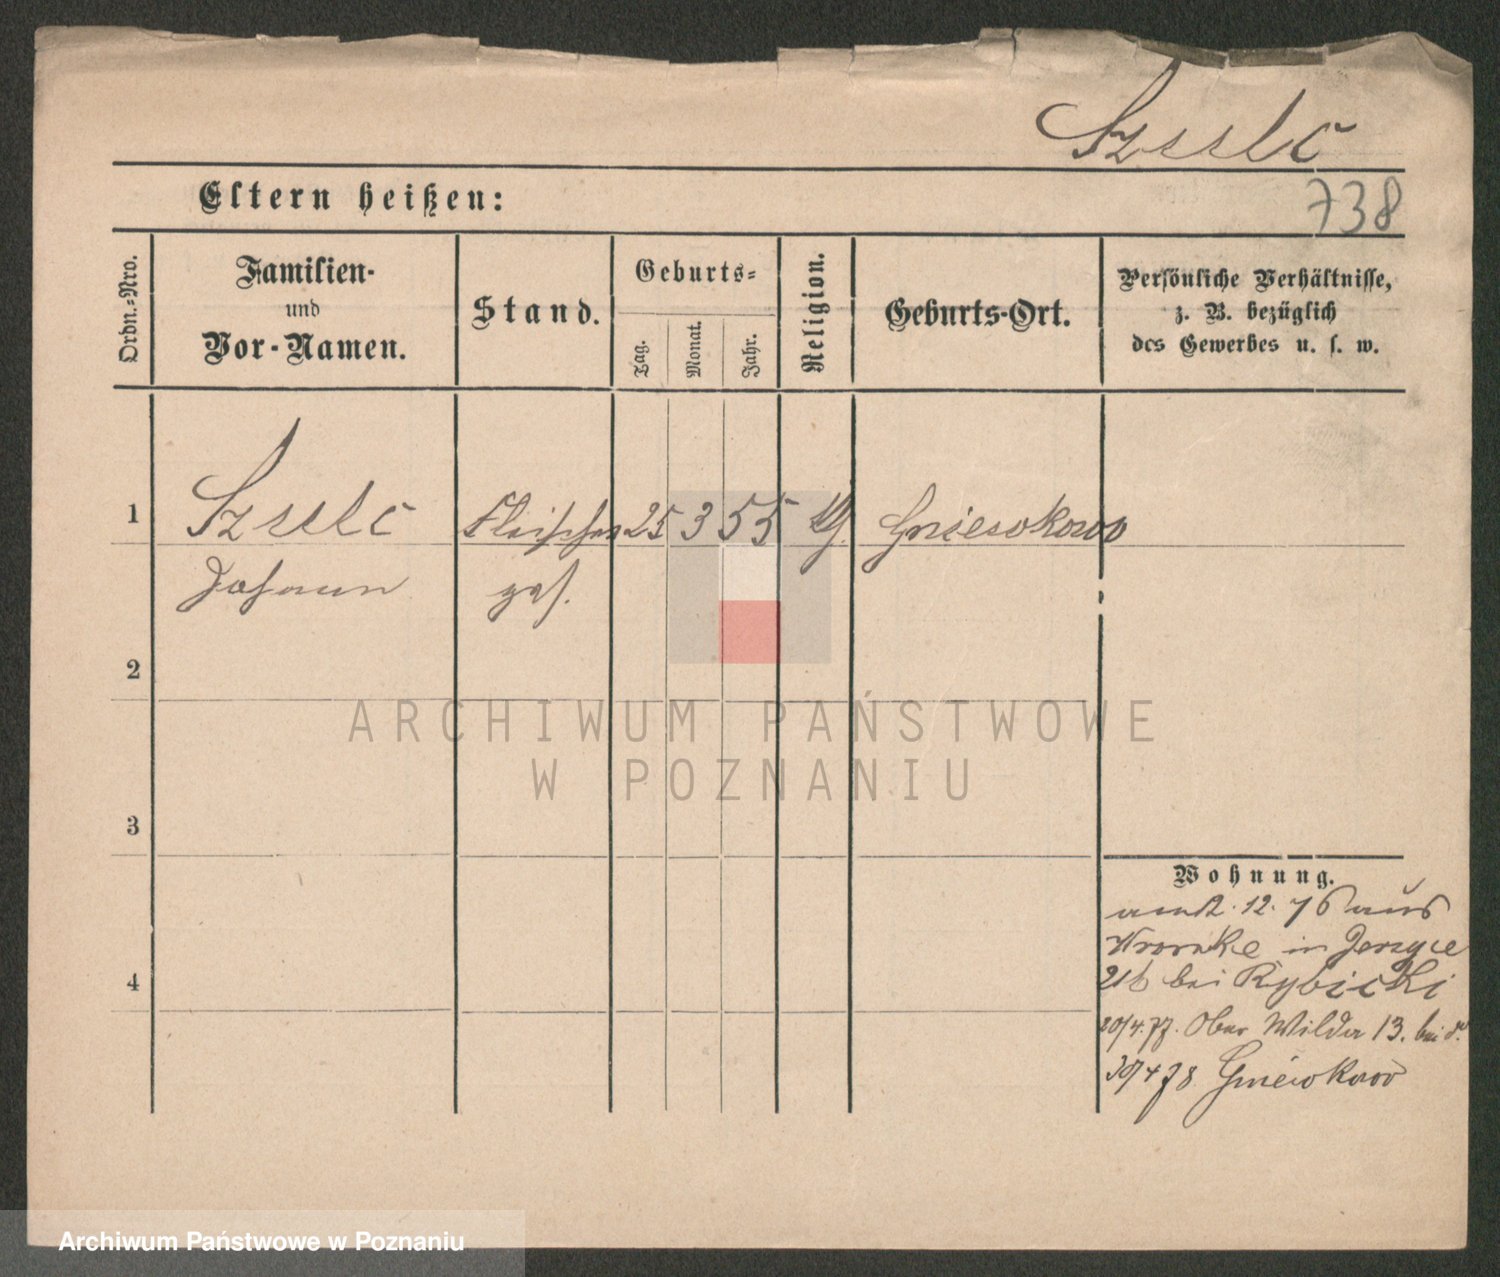 Szulc
Eltern heißen:
738
Ordn.-Nro.
Familien-
und
Vor-Namen.
Stand.
Geburts-
Tag.
Monat.
Jahr.
Religion.
Geburts-Ort.
Persönliche Verhältnisse,
z. B. bezüglich
des Gewerbes u. s. w.
1
Szulc
Fleischer
25
3
55
Gniewkowo
Johann
ges.
2
ARCHIWUM PAŃSTWOWE
W POZNANIU
3
Wohnung.
12. 76 aus
Wronke in Jerzyce
21b bei Rybicki
20/4.77. Ober Wilda 13. bei
30/4 78 Gniewkowo
4
Archiwum Państwowe w Poznaniu